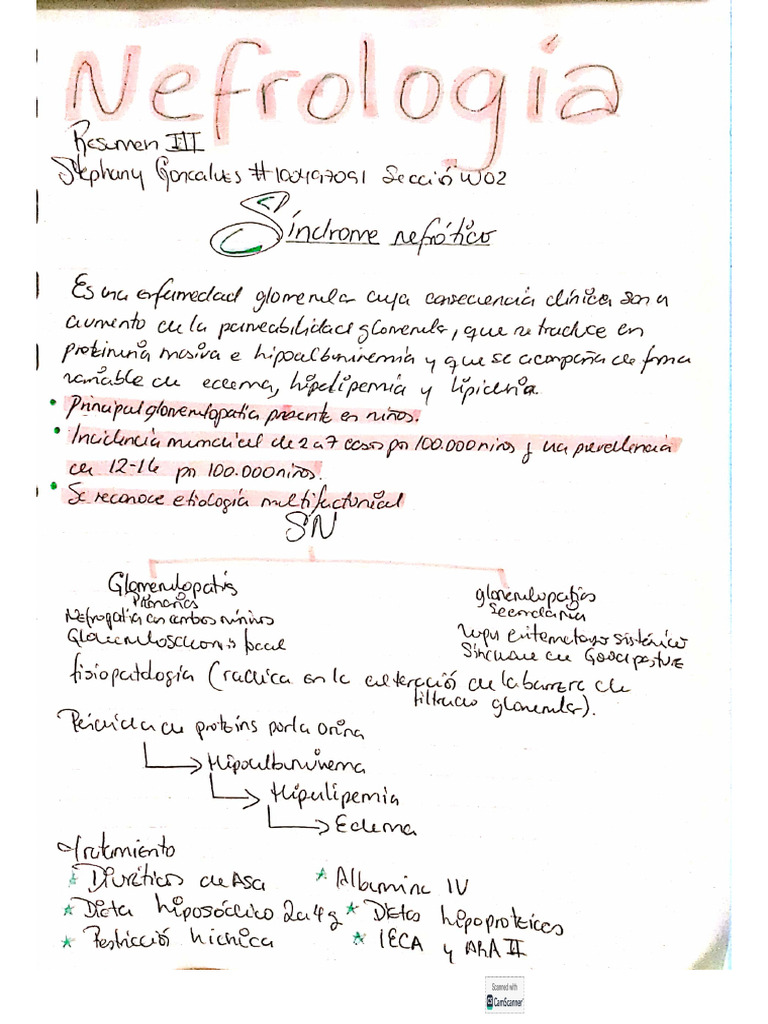 Nefrología
Resumen III
Stephany Goncalves #100497091 Sección W02
Síndrome nefrótico
Es una enfermedad glomerular cuya consecuencia clínica son a
aumento de la permeabilidad glomerular, que se traduce en
proteinuria masiva e hipoalbuminemia y que se acompaña de forma
variable de edema, hiperlipemia y lipiduria.
• Principal glomerulopatia presente en niños.
• Incidencia mundial de 2 a 7 casos por 100.000 niños y una prevalencia
de 12-16 por 100.000 niños.
• Se reconoce etiología multifactorial
SN
Glomerulopatias
Primarias
Nefropatia en cambios mínimos
Glomerulosclerosis focal
glomerulopatias
Secundaria
lupus eritematoso sistémico
Síndrome de Goodpasture
fisiopatología (radica en la alteración de la barrera de
filtrado glomerular).
Perdida de proteinas por la orina
Hipoalbuminemia
Hiperlipemia
Edema
Tratamiento
* Diuréticos de Asa
* Albumina IV
* Dieta hiposódico 2a4g
* Dietas hipoproteicas
* Restricción hídrica
* IECA y ARA II
Scanned with
CS CamScanner